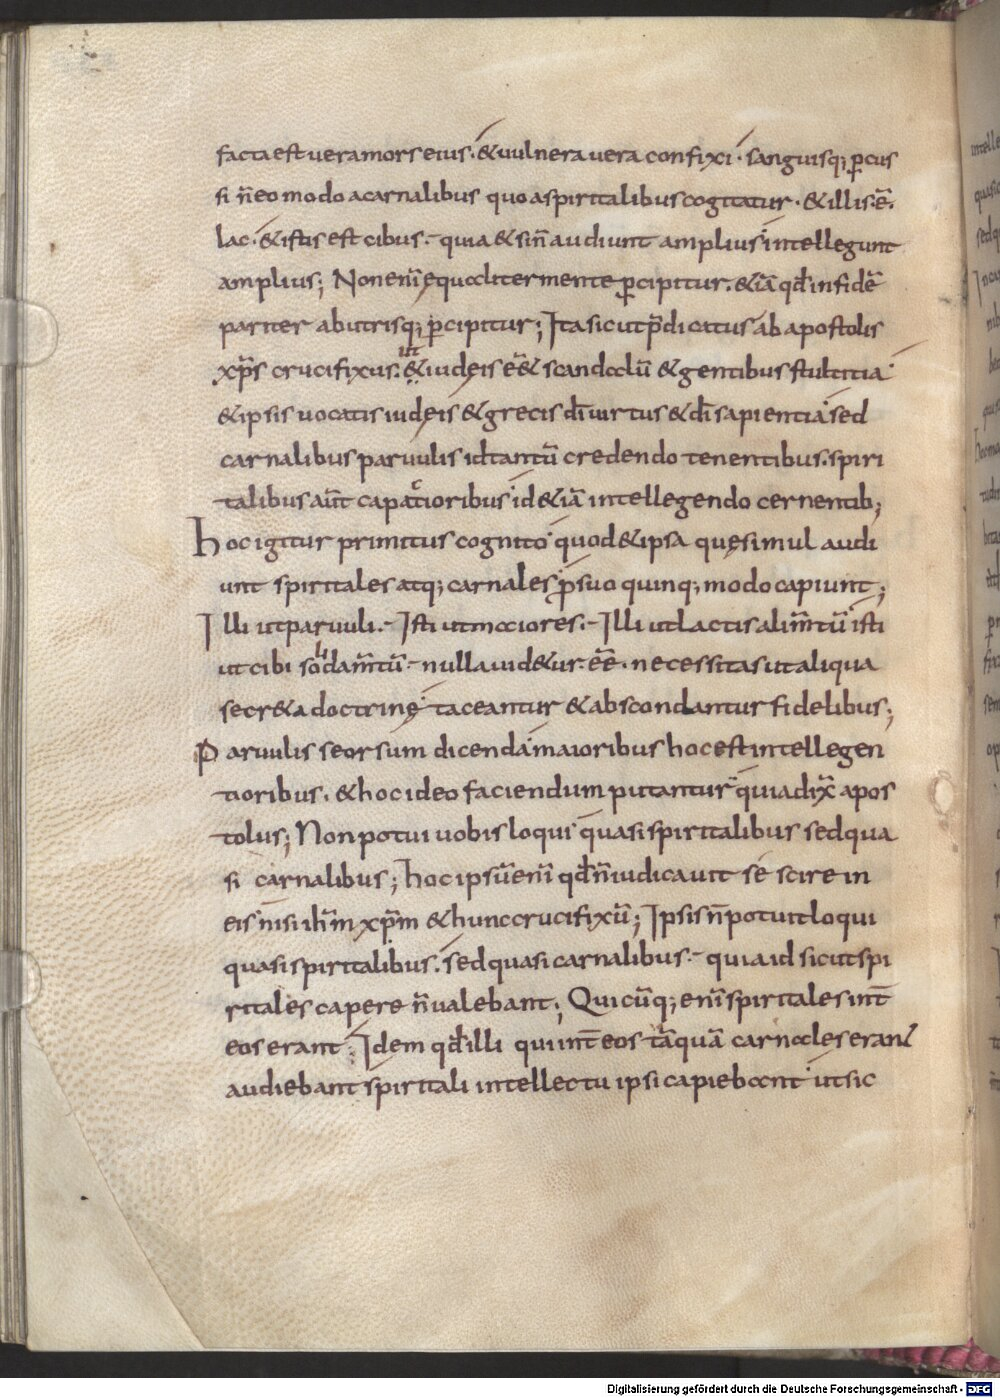 facta est uera mors eius · & uulnera uera confixi · sanguisq; ꝑcus
si n̄ eo modo a carnalibus quo a spiritalibus cogitatur · & illis ē
lac · & istis est cibus · quia & si n̄ audiunt amplius intellegunt
amplius; Non enī ęqualiter mente ꝑcipitur · &iā qđ in fide ē
pariter ab utrisq; ꝑcipitur; Ita sicut p̄dicatus ab apostolis
xp̄s crucifixus · ut & iudęis eēt scandalū & gentibus stultitia
& ipsis uocatis iudęis & grecis dī uirtus & dī sapientia sed
carnalibus paruulis id tantū credendo tenentibus · spiri
talibus aūt capatioribus id &iā intellegendo cernentib;
Hoc igitur primitus cognito quod & ipsa quę simul audi
unt spiritales atq; carnales ꝓ suo quinq; modo capiunt;
Illi ut paruuli · Isti ut maiores · Illi ut lactis alim̄tū isti
ut cibi sodam̄tū · nulla uid&ur eē · necessitas ut aliqua
secr&a doctrinę taceantur & abscondantur fidelibus;
Paruulis seorsum dicenda maioribus hoc est intellegen
tioribus · & hoc ideo faciendum putantur quia dix̄ apos
tolus; Non potui uobis loqui quasi spiritalibus sed qua
si carnalibus; hoc ipsū enī qđ n̄ iudicauit se scire in
eis nisi ih̄m xp̄m & hunc crucifixū; Ipsis n̄ potuit loqui
quasi spiritalibus · sed quasi carnalibus · quia id sicut spi
ritales capere n̄ ualebant; Qui cūq; enī spiritales int̄
eos erant; Idem qđ illi qui int̄ eos tāquā carnales erant
audiebant spiritali intellectu ipsi capiebant ut sic
Digitalisierung gefördert durch die Deutsche Forschungsgemeinschaft - DFG